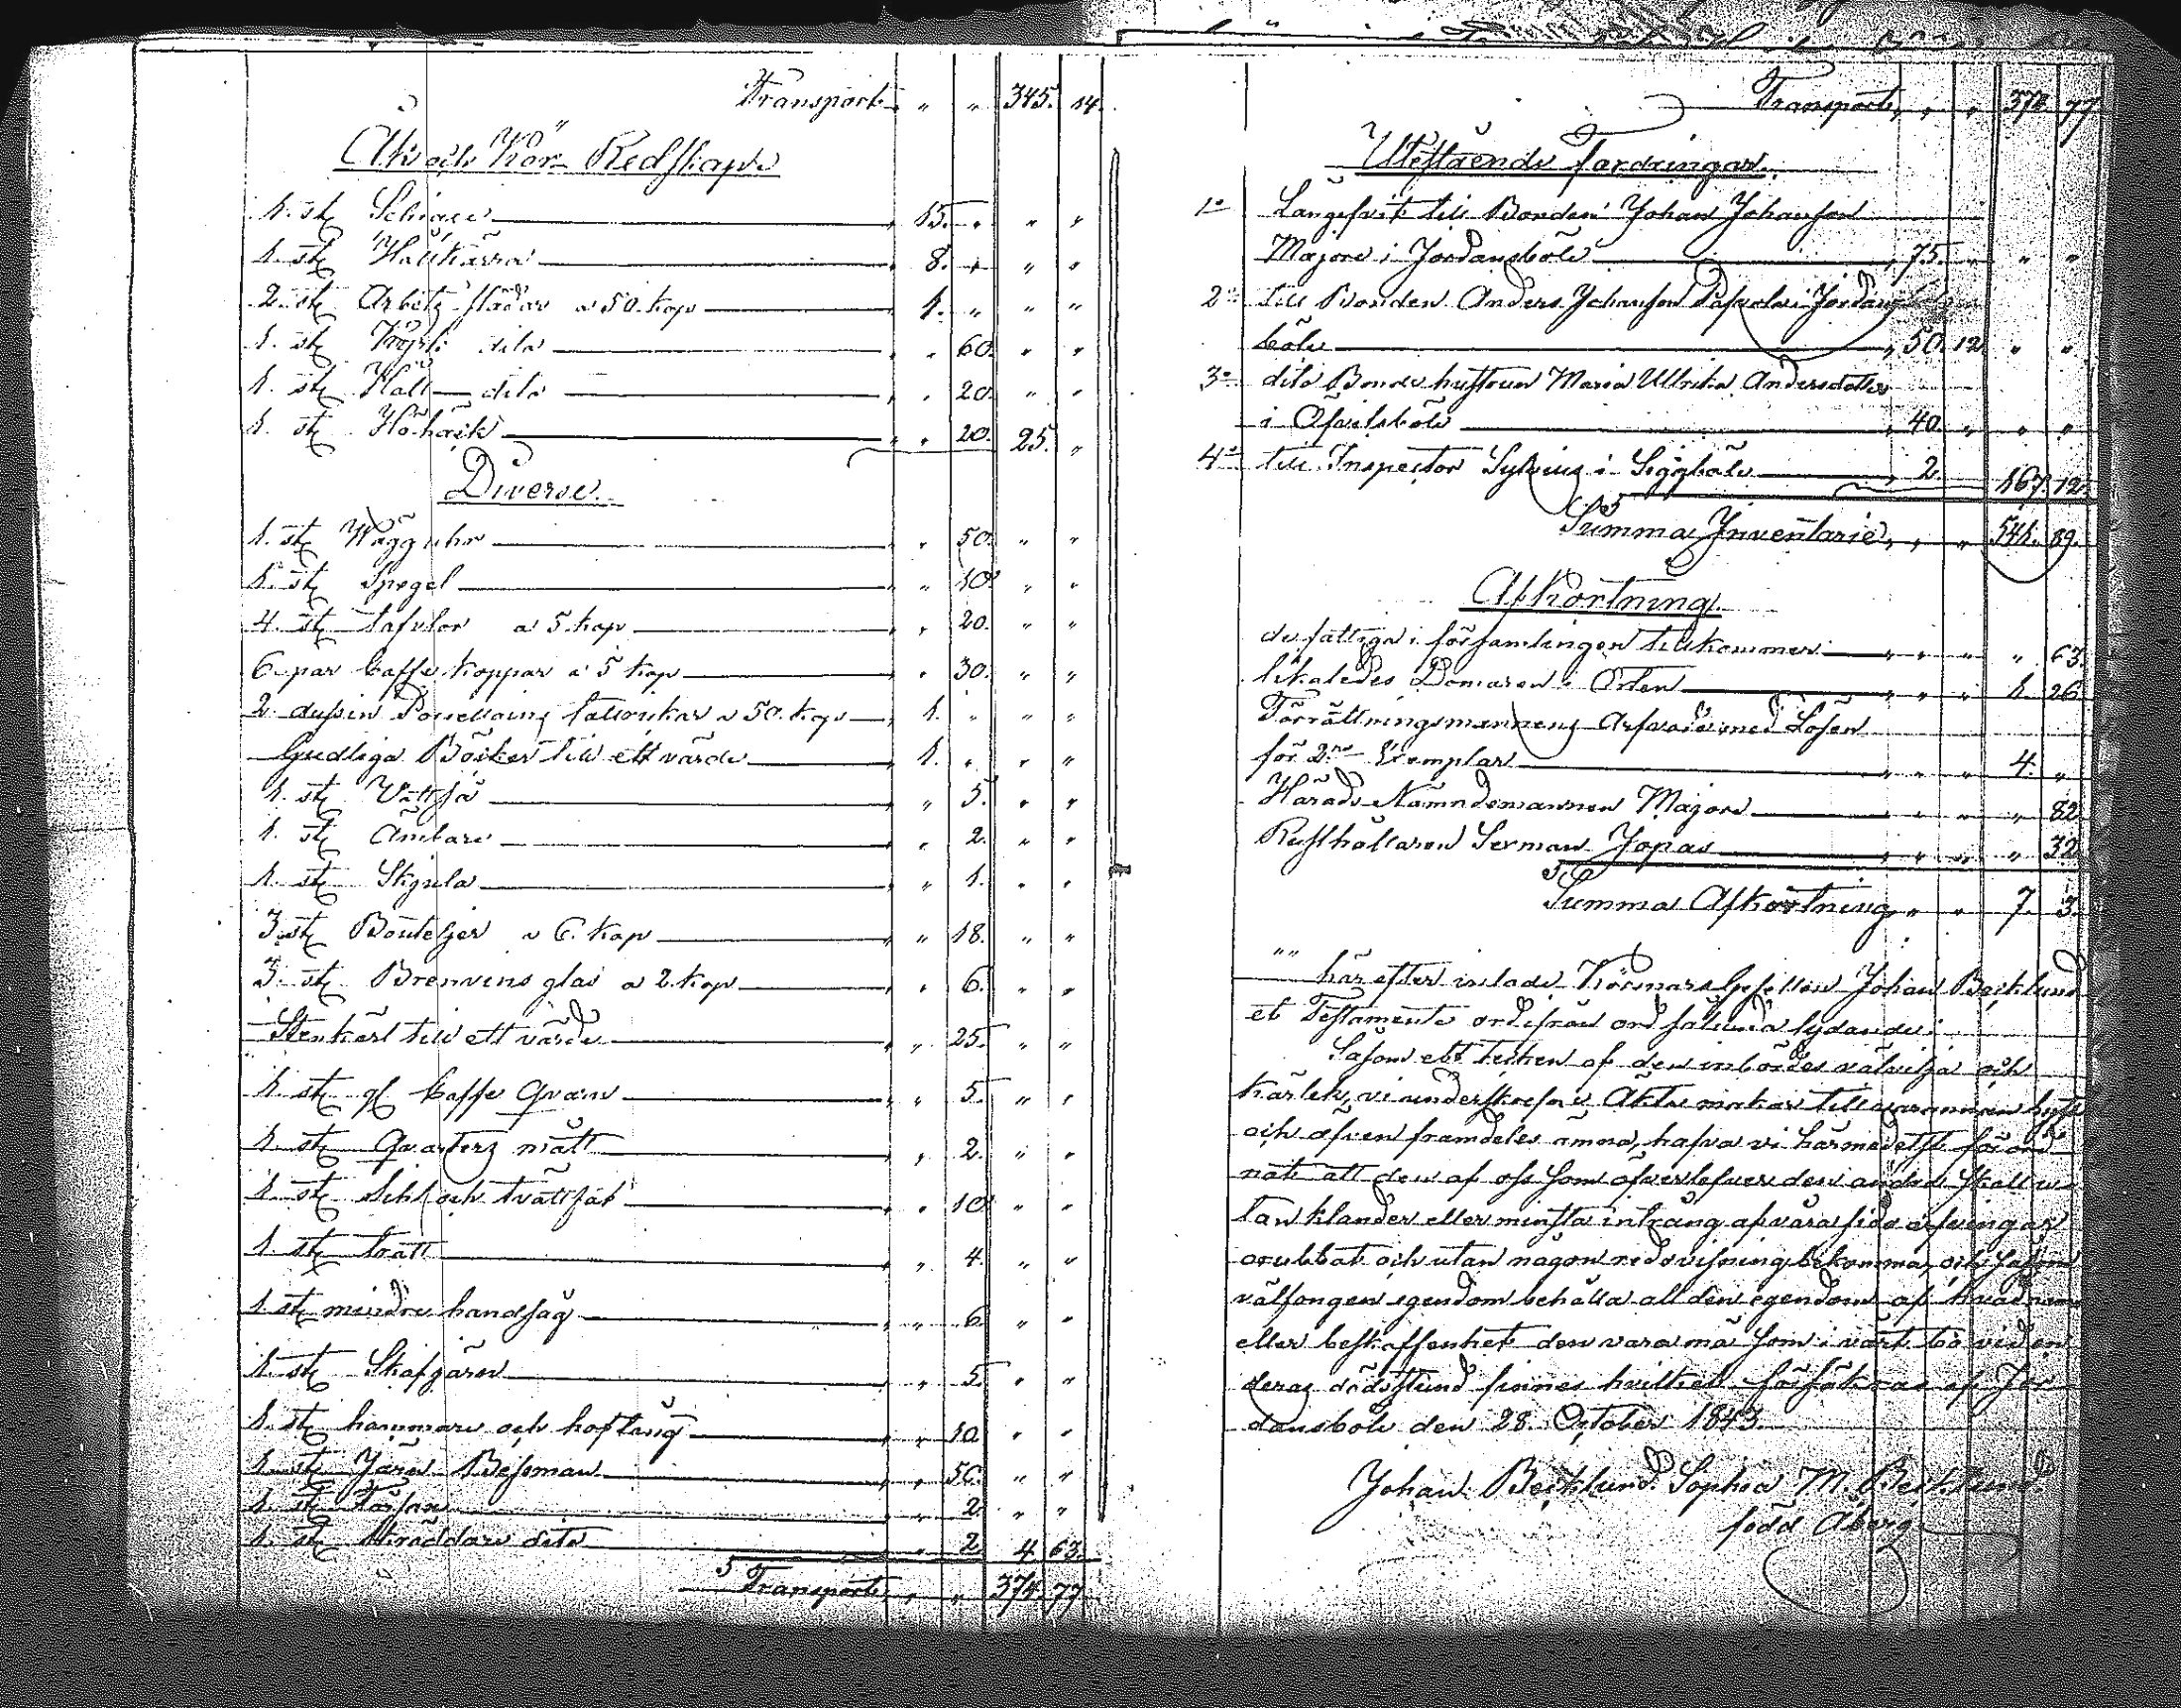 Transport " " 345. 14.
Åk och Kör Redskap
1. st Schiäse 15. " " "
1. st Hällkärra 8. " " "
2. st Arbetz slädar a 50. kop 1. " " "
1. st Kyrk dito " 60. " "
1. st Häll dito " 20. " "
1. st Höhäck " 20. 25. "
Diverse
1. st Wägguhr " 50. " "
1. st Spegel " 10. " "
4. st taflor a 5 kop " 20. " "
6 par Caffe koppar a 5 kop " 30. " "
2 dussin Porcellains tallrikar a 50. kop 1. " " "
Gudliga Böcker till ett värde 1. " " "
1. st " 5. " "
1. st Ämbare " 2. " "
1. st " 1. " "
3. st Bouteljer a 6. kop " 18. " "
3. st Brenvins glas a 2 kop " 6. " "
Stenkärl till ett värde " 25. " "
1. st gl Caffe Qvarn " 5. " "
1. st Qvarters mått " 2. " "
1. st och tvättfat " 10. " "
1. st tratt " 4. " "
1. st mindre handsåg " 6. " "
1. st Skafjärn " 5. " "
1. st hammare och hoftång " 10 " "
1. st Järn Bessman " 50. " "
1. st " 2. " "
1. st dito " 2. 4 63.
Transport " " 374. 77
Transport " " 374. 77
Utestående fordringar
1o Längifvit till Bonden Johan Johansson
Majors i Jordansböle 75. " " "
2o till Bonden Anders Johansson i Jordans
böle 50. 12 " "
3o dito Bonde hustrun Maria Ullrika Andersdotter
i Öfvitsböle 40. " " "
4o till Inspector Sylvius i Siggböle 2. 167. 12.
Summa Inventarie " " 541. 89.
Afkortning
de fattiga i församlingen tillkommer " " " 63.
likaledes Domaren i Orten " " 1. 26
Förrättningsmannens Arfvode med Lösen
för 2ne Exemplar " " 4. "
Härads Nämndemannen Majors " " " 82
Rusthållaren Serman " " " 32
Summa Afkortning " " 7. 3.
här efter inlade Körsnärs Gesellen Johan Becklund
et Testamente ord ifrån ord sålunda lydande:
Såsom ett tecken af den inbördes välvilja och
kärlek, vi underskrefne Äkta makar till hvarannan hyst
och äfven framdeles ämna, hafva vi härmedelst förord-
nat att den af oss som öfverlefver den andra skall u-
tan klander eller minsta intrång af våra sido arfvingar
orubbat och utan någon redovisning bekomma, och såsom
välfången egendom behålla all den egendom af hvad namn
eller beskaffenhet den vara må som i vårt bo vid en-
deras dödsstund finnes hvilket försäkras af Jor-
dansböle den 28. October 1843.
Johan Becklund. Sophia M. Becklund.
född Åberg